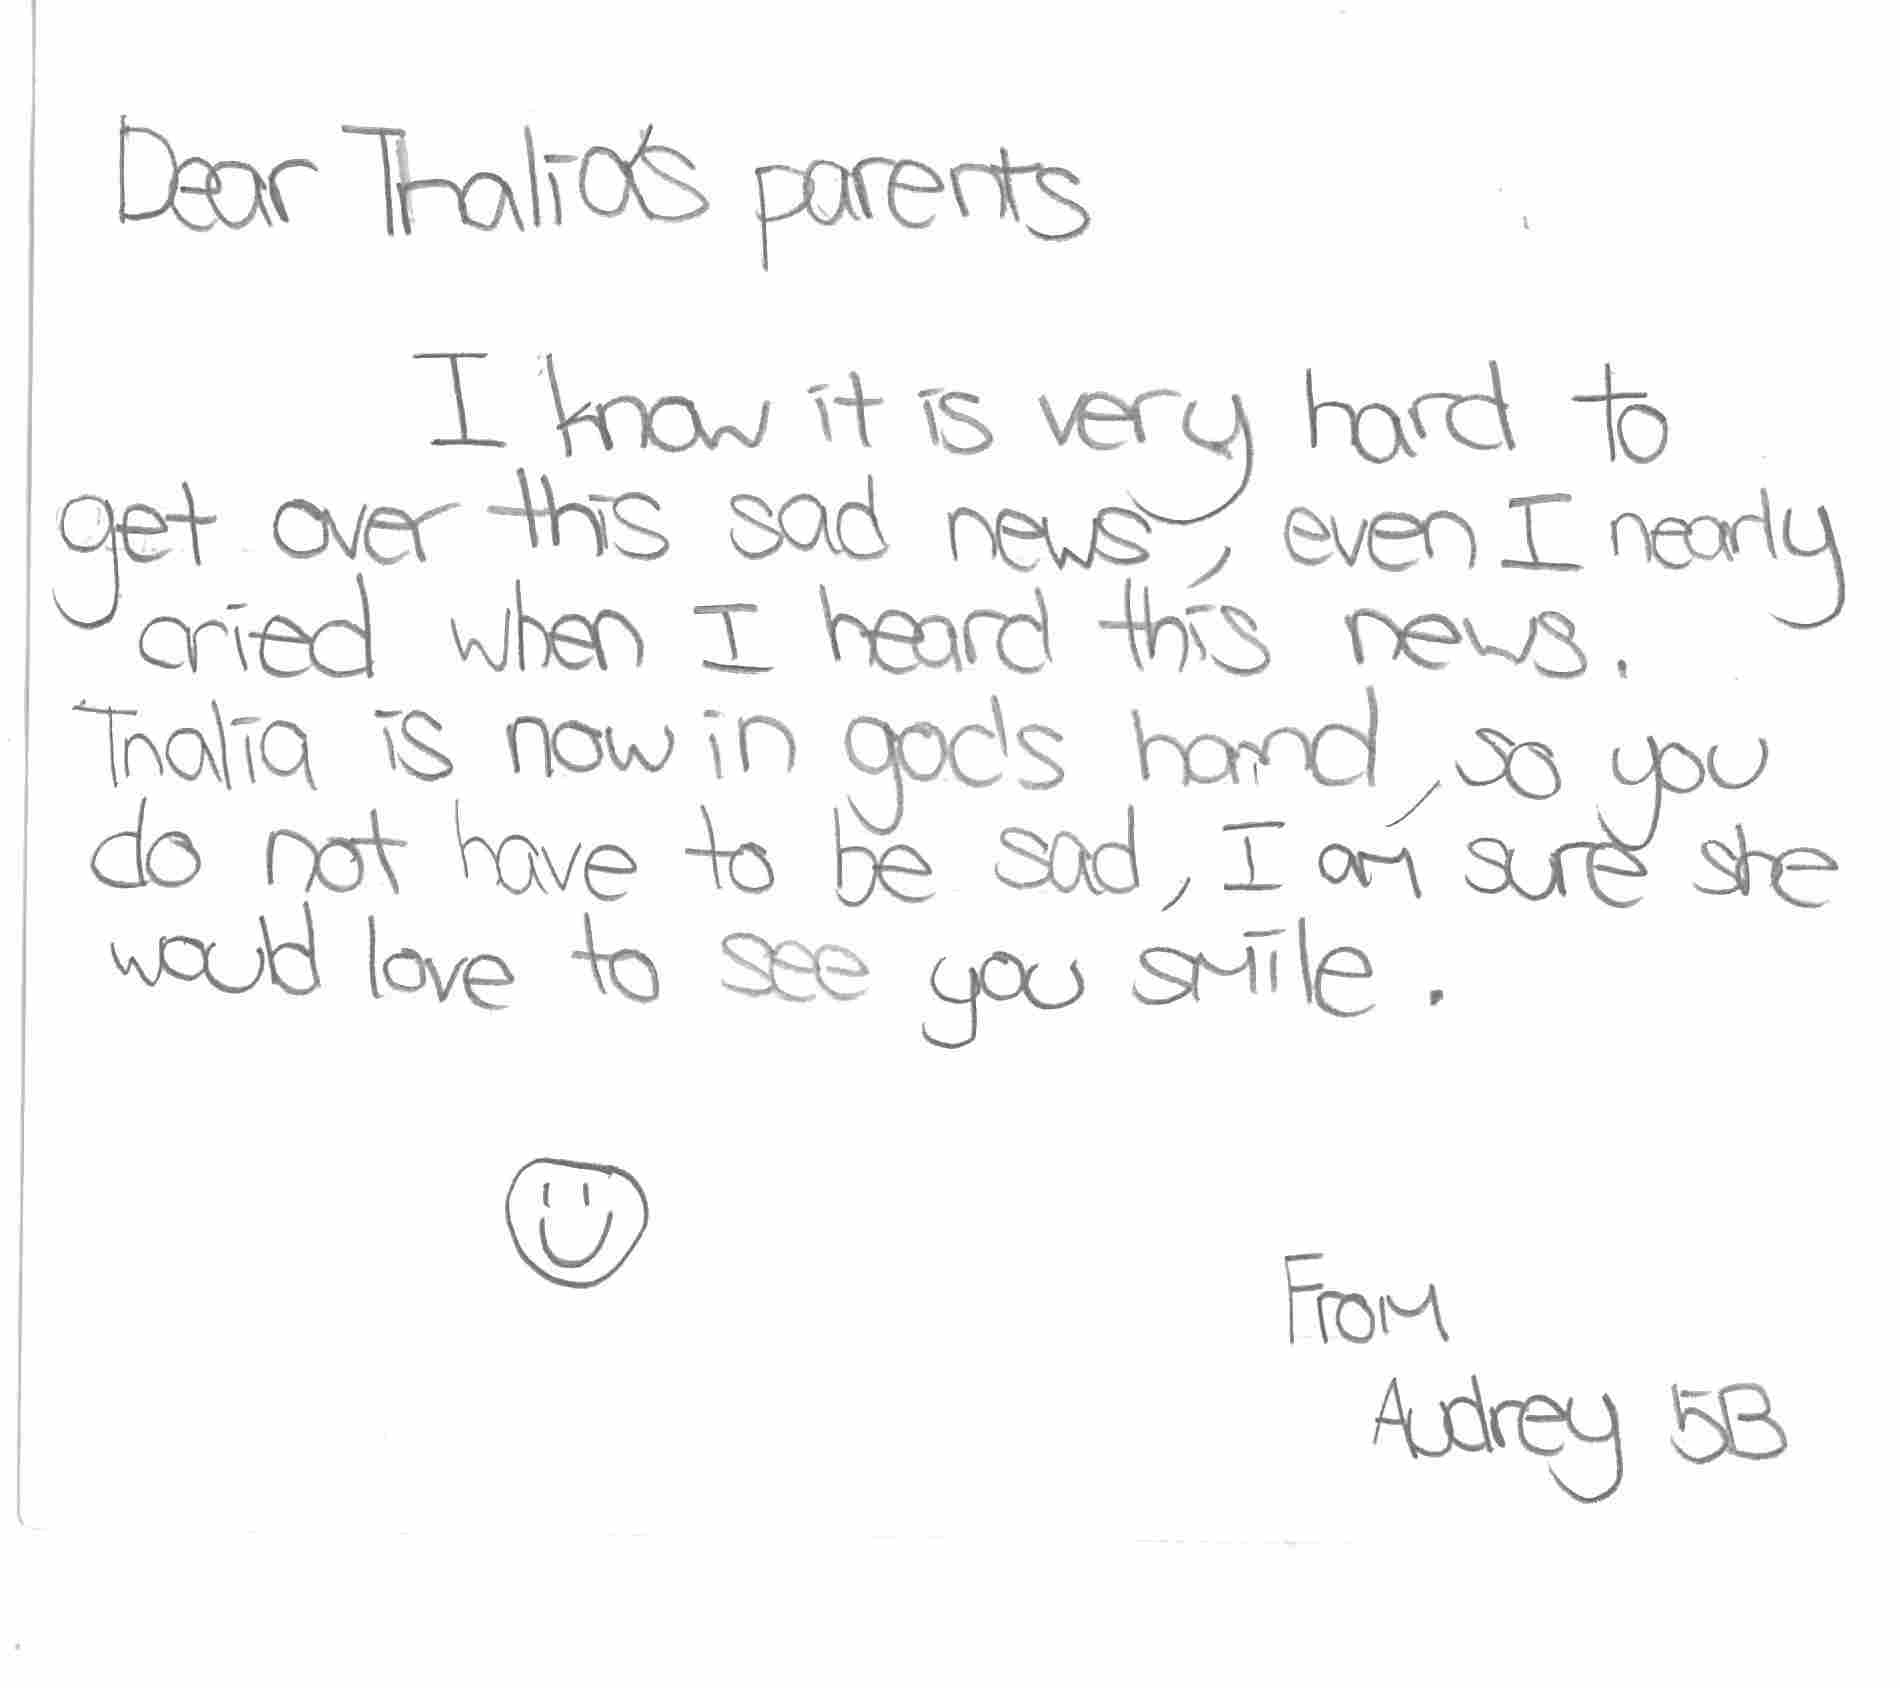 Dear Thalia's parents
I know it is very hard to
get over this sad news, even I nearly
cried when I heard this news.
Thalia is now in god's hand, so you
do not have to be sad, I am sure she
would love to see you smile.
From
Audrey 5B